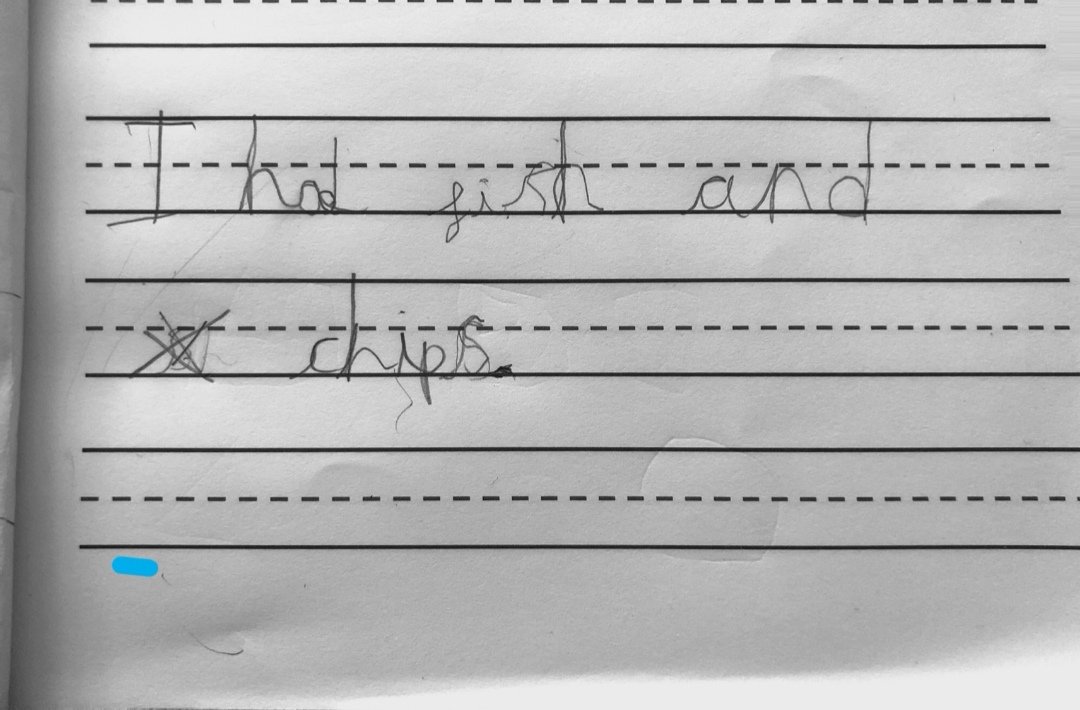 I had fish and
chips.